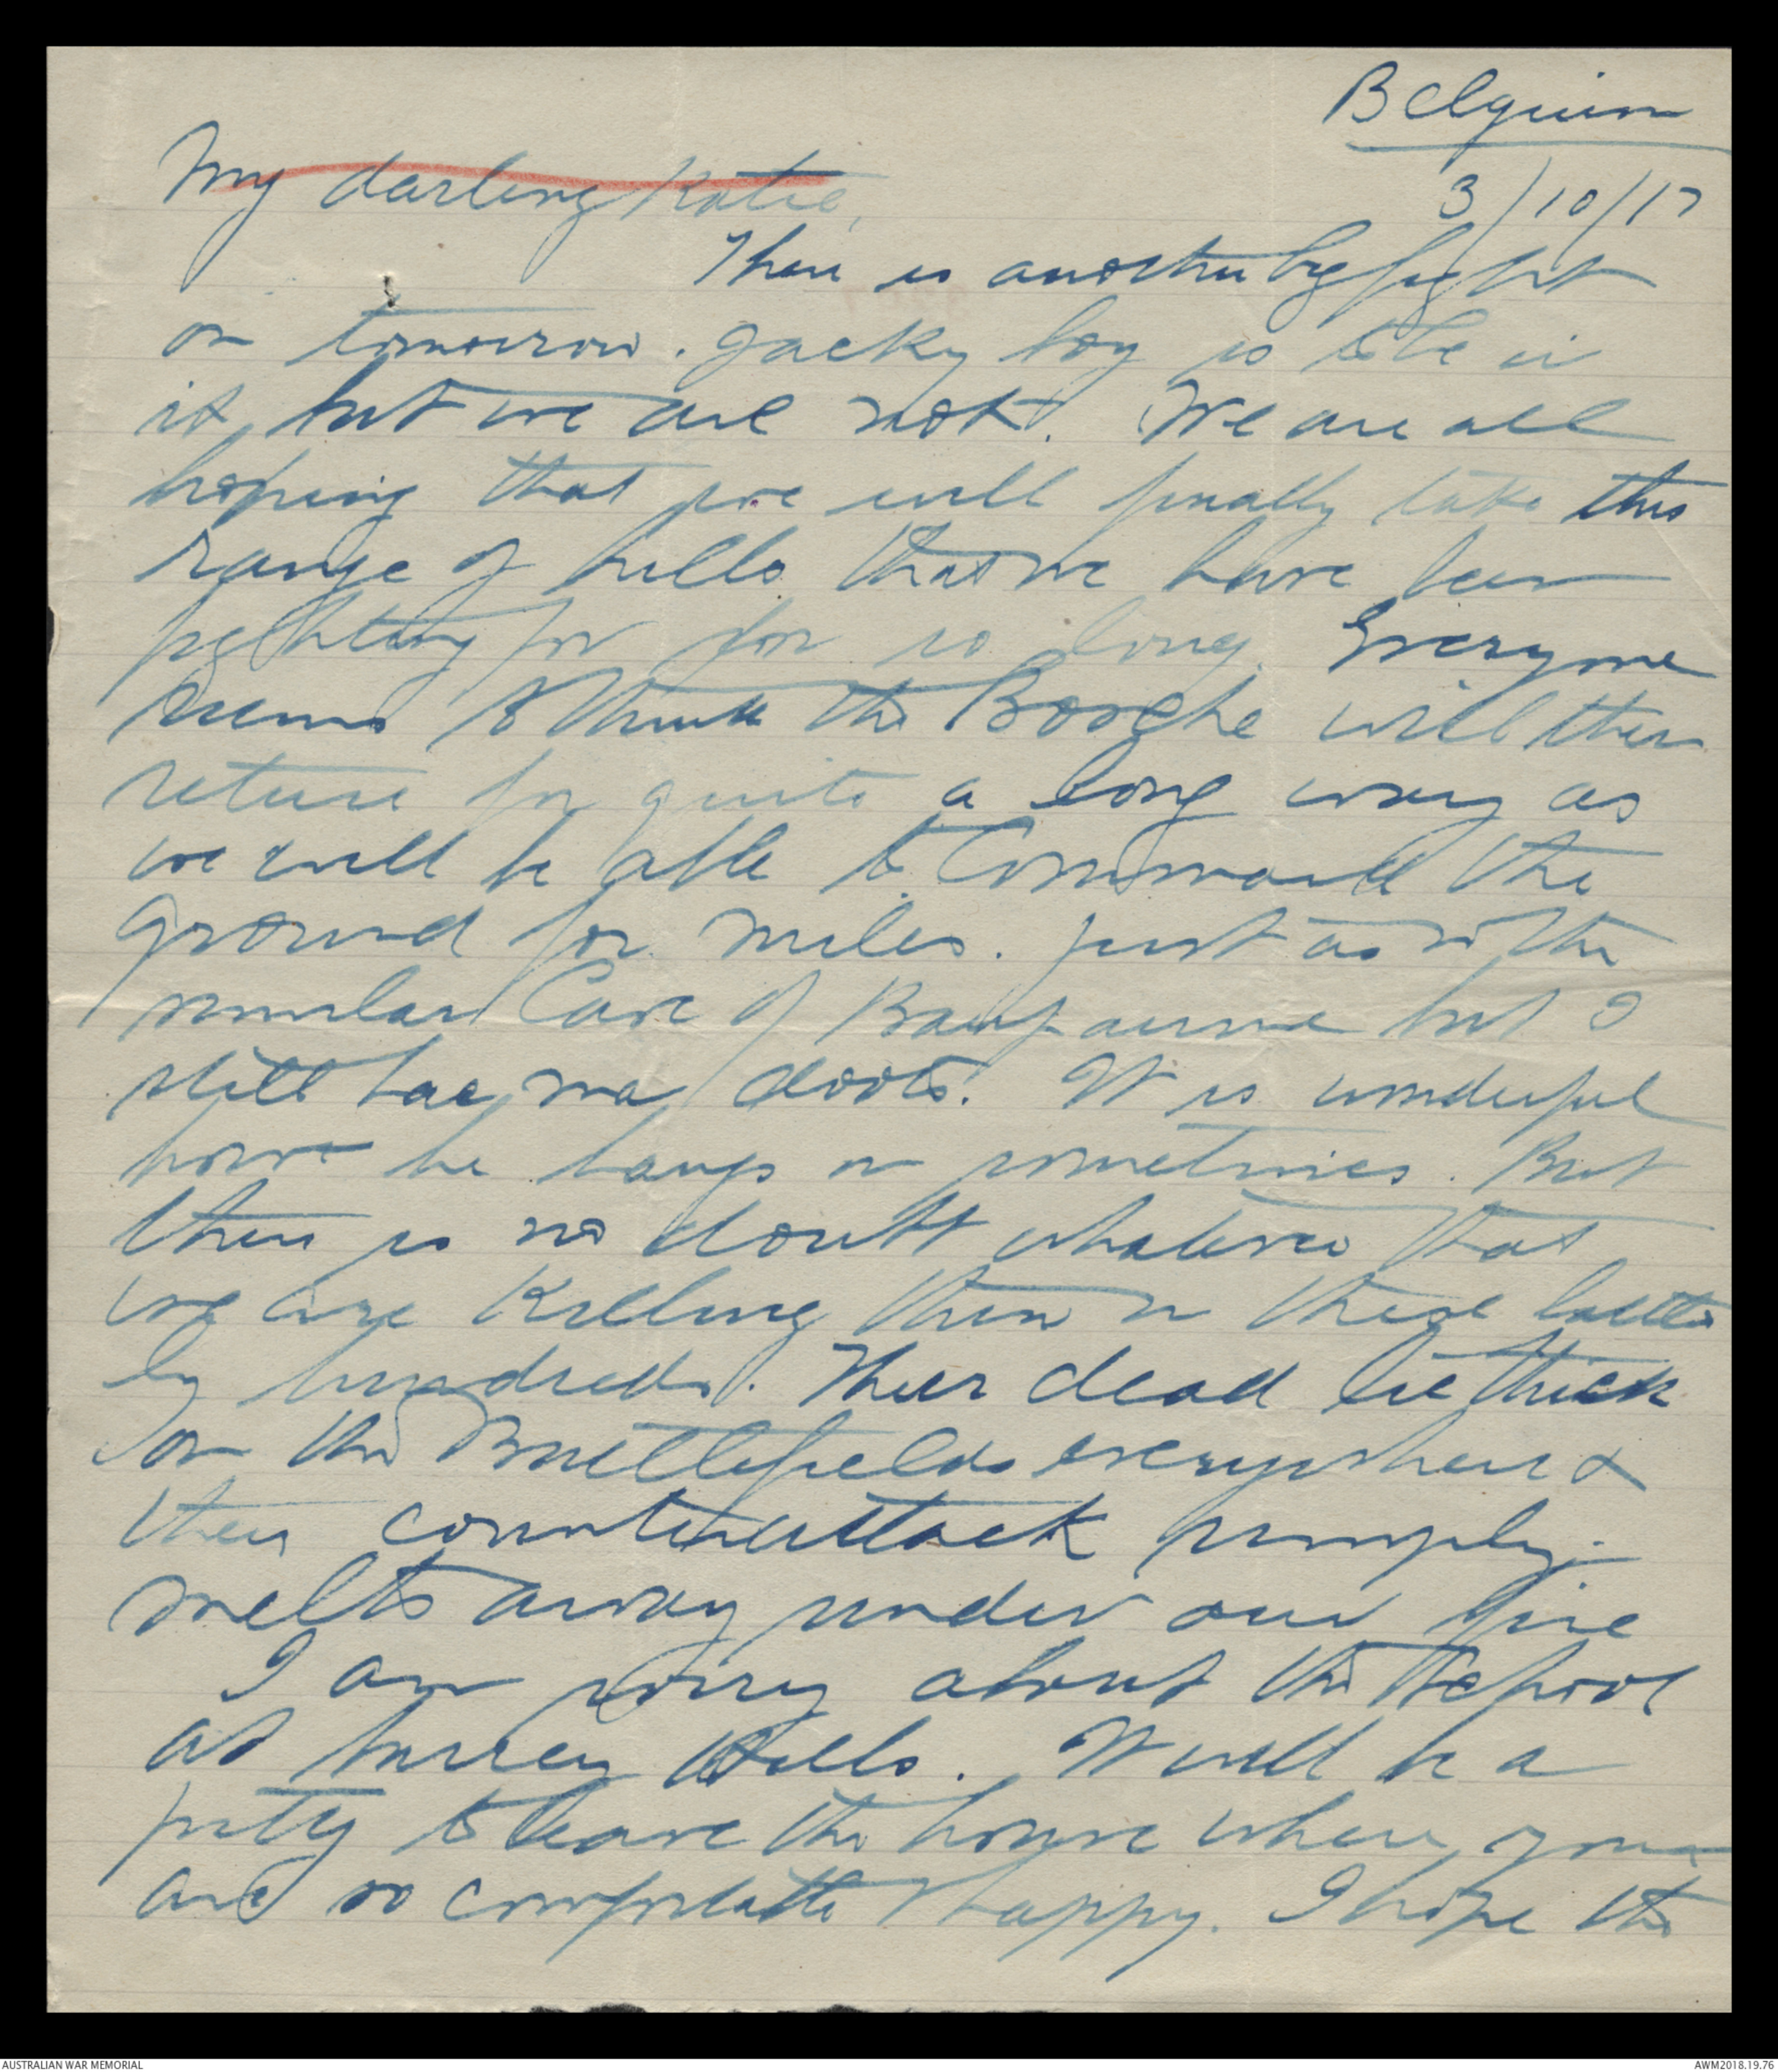 Belguim
3/10/17
My darling Katie,
There is another big fight
on tomorrow. Jacky boy is to be in
it, but we are not. We are all
hoping that we will finally take this
range of hills that we have been
fighting for for so long. Everyone
seems to think the Bosche will then
retire for quite a long way as
we will be able to command the
ground for miles. just as in the
similar case of Baupaume but I
still hae ma doots. It is wonderful
how he hangs on sometimes. But
there is no doubt whatever that
we are killing them in these battles
by hundreds. Their dead lie thick
on the Battlefields everywhere &
their counterattack simply
melts away under our fire
I am sorry about the School
at Surrey Hills. It will be a
pitty to leave the house where you
are so comfortable & happy. I hope the
AUSTRALIAN WAR MEMORIAL
AWM2018.19.76